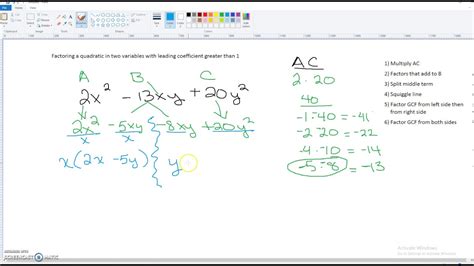 Factoring a quadratic in two variables with leading coefficient greater than 1
A B C
2x² -13xy +20y²
2x² -5xy -8xy +20y²
x x
x(2x -5y) y
AC
2·20
40
-1·-40 = -41
-2·20 = -22
-4·10 = -14
-5·-8 = -13
1) Multiply AC
2) Factors that add to B
3) Split middle term
4) Squiggle line
5) Factor GCF from left side then
from right side
6) Factor GCF from both sides